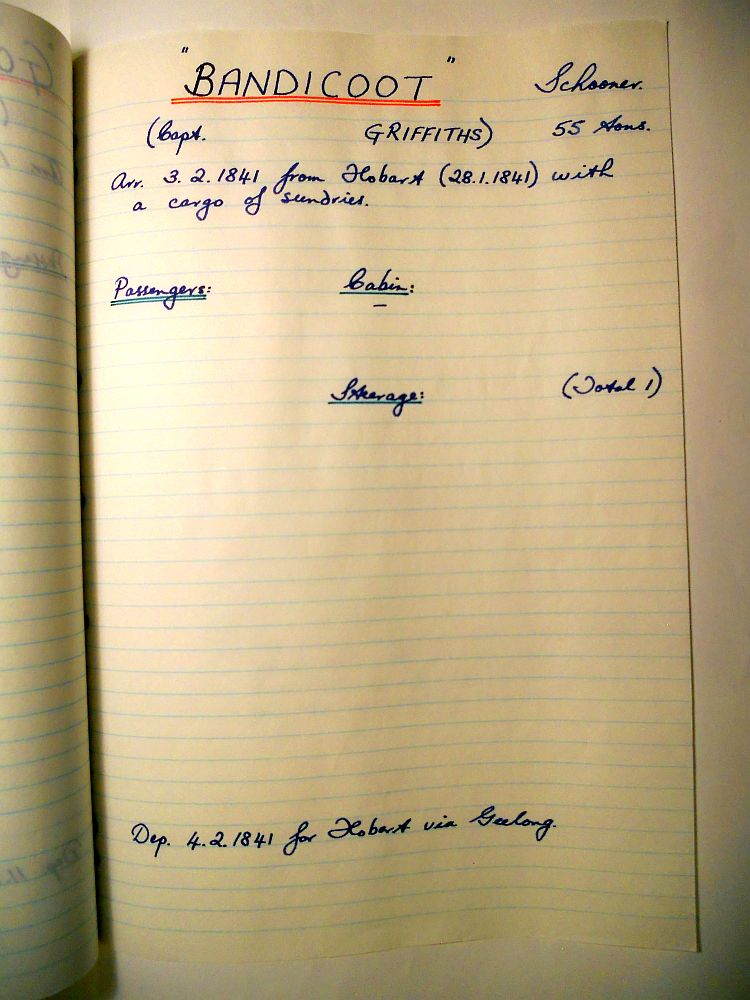 "BANDICOOT" Schooner.
(Capt. GRIFFITHS) 55 tons.
Arr. 3.2.1841 from Hobart (28.1.1841) with
a cargo of sundries.
Passengers: Cabin:
–
Steerage: (Total 1)
Dep. 4.2.1841 for Hobart via Geelong.